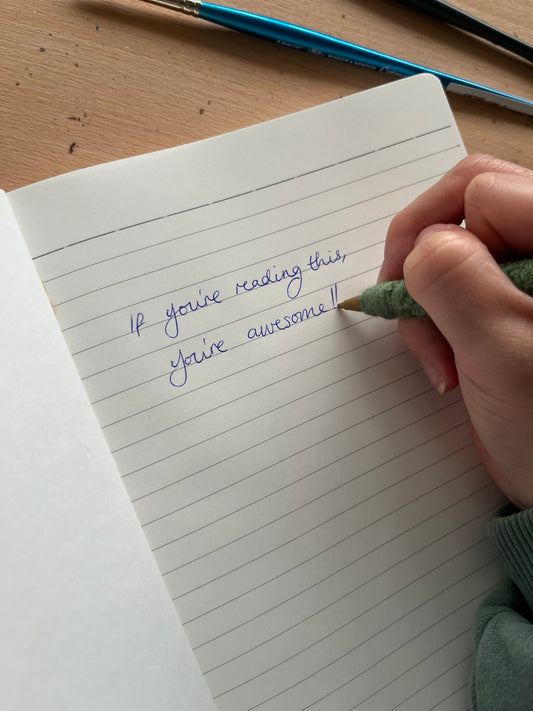 If you're reading this,
you're awesome!!